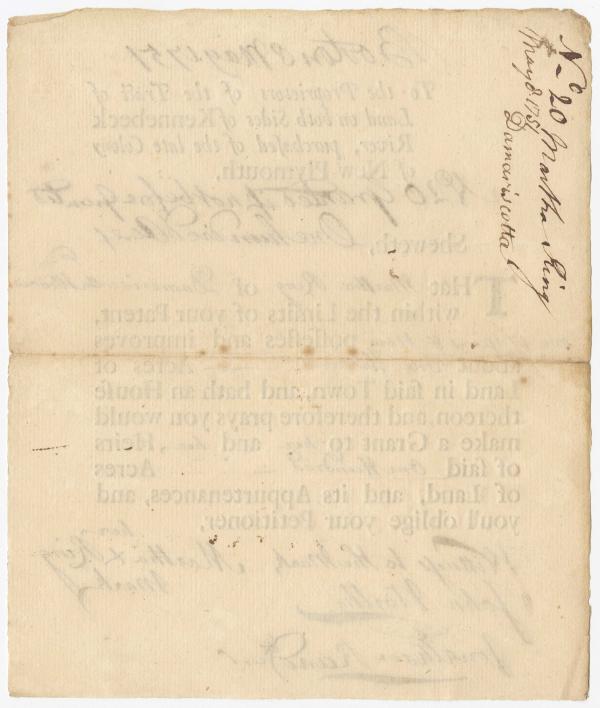 No 20 Martha King
May 8 1751
Damariscotta
Boston 8 May 1751
To the Proprietors of the Tract of
Land on both Sides of Kennebeck
River, purchased of the late Colony
of New Plymouth,
No 20 Granted
One hundred
Sheweth,
THat Martha King of Damariscotta
within the Limits of your Patent,
possesses and improves
about Acres of
Land in said Town, and hath an House
thereon, and therefore prays you would
make a Grant to her and her Heirs
of said One Hundred Acres
of Land, and its Appurtenances, and
you'l oblige your Petitioner,
her
Witness to the mark, Martha x King
mark
John North
Jonathan